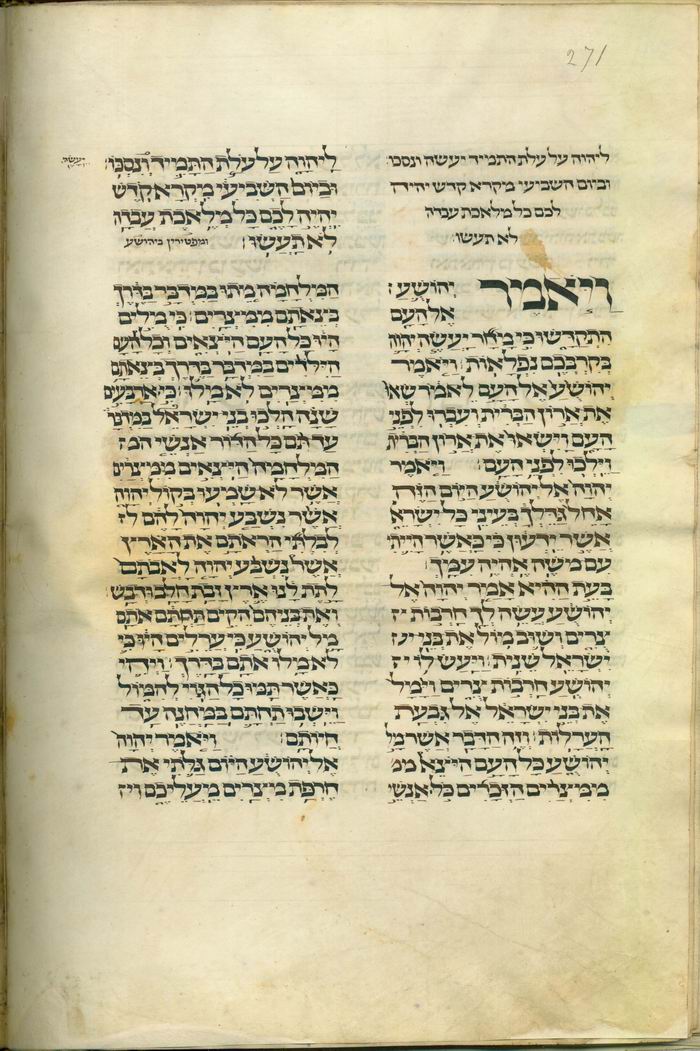 271
ליהוה על עלת התמיד יעשה ונסכו:
וביום השביעי מקרא קדש יהיה
לכם כל מלאכת עבדה
לא תעשו:
ויאמר יהושע
אל העם
התקדשו כי מחר יעשה יהוה
בקרבכם נפלאות: ויאמר
יהושע אל העם לאמר שאו
את ארון הברית ועברו לפני
העם וישאו את ארון הברית
וילכו לפני העם: ויאמר
יהוה אל יהושע היום הזה
אחל גדלך בעיני כל ישרא
אשר ידעון כי כאשר הייתי
עם משה אהיה עמך:
בעת ההיא אמר יהוה אל
יהושע עשה לך חרבות
צרים ושוב מול את בני
ישראל שנית: ויעש לו
יהושע חרבות צרים וימל
את בני ישראל אל גבעת
הערלות: וזה הדבר אשר מל
יהושע כל העם היצא ממ
ממצרים הזכרים כל אנשי
יעשה
ליהוה על עלת התמיד ונסכו:
וביום השביעי מקרא קדש
יהיה לכם כל מלאכת עבדה
לא תעשו: ומפטירין ביהושע
המלחמה מתו במדבר בדרך
בצאתם ממצרים: כי מלים
היו כל העם היצאים וכל העם
הילדים במדבר בדרך בצאתם
ממצרים לא מלו: כי ארבעים
שנה הלכו בני ישראל במדבר
עד תם כל הגוי אנשי המ
המלחמה היצאים ממצרים
אשר לא שמעו בקול יהוה
אשר נשבע יהוה להם ל
לבלתי הראתם את הארץ
אשר נשבע יהוה לאבתם
לתת לנו ארץ זבת חלב ודבש:
ואת בניהם הקים תחתם אתם
מל יהושע כי ערלים היו כי
לא מלו אתם בדרך: ויהי
כאשר תמו כל הגוי להמול
וישבו תחתם במחנה עד
חיותם: ויאמר יהוה
אל יהושע היום גלותי את
חרפת מצרים מעליכם וי